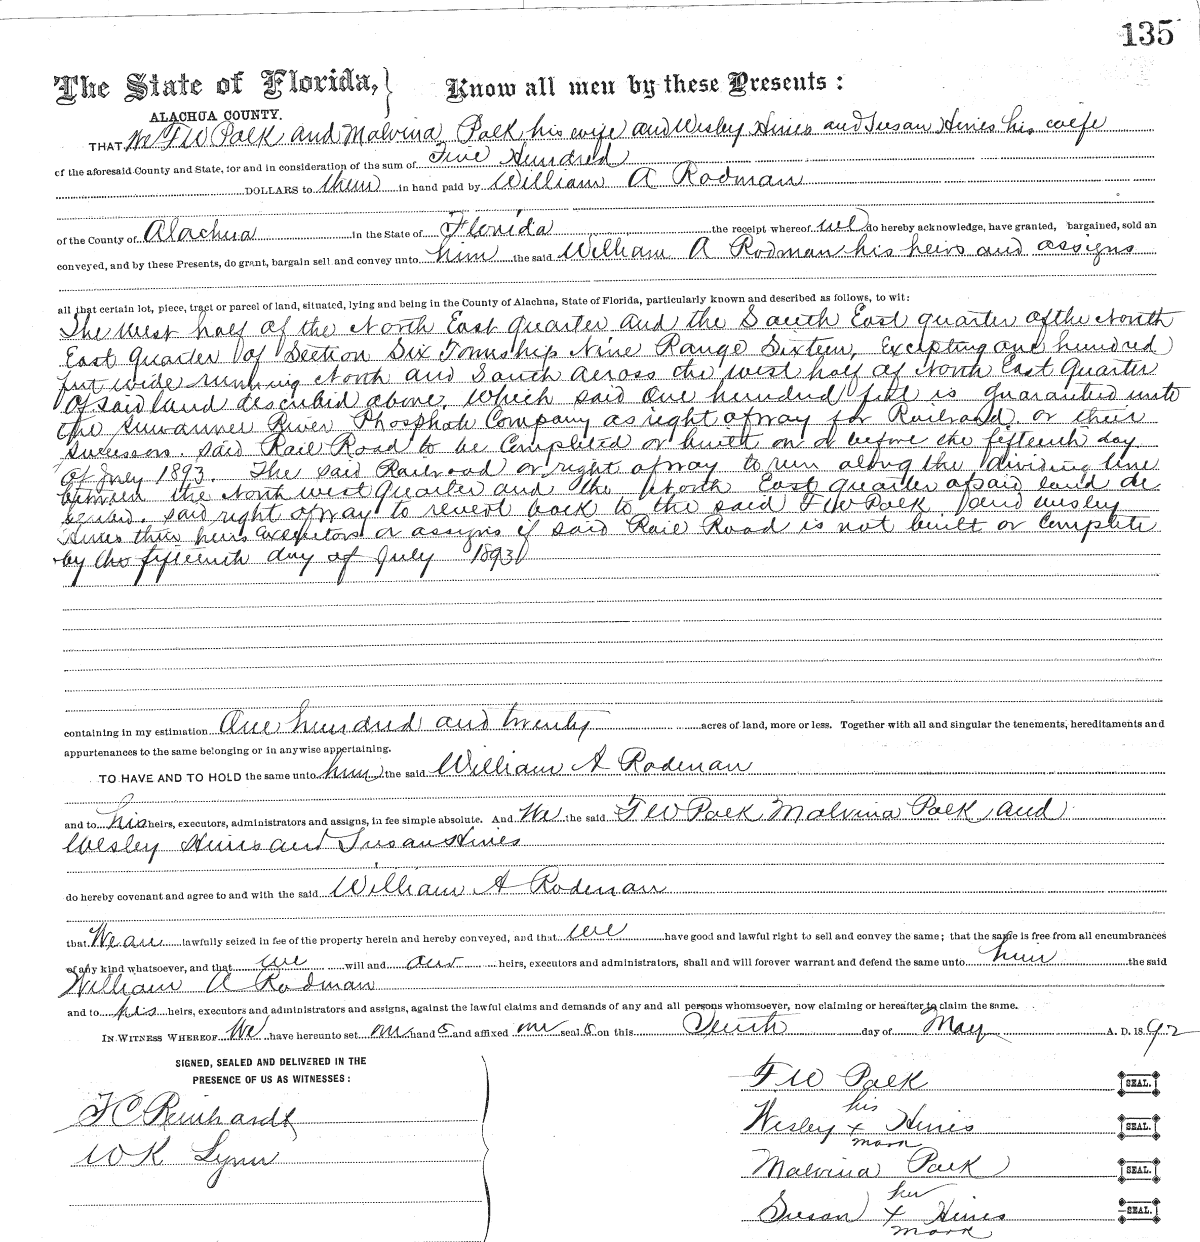 135
The State of Florida, } Know all men by these Presents :
ALACHUA COUNTY.
THAT We F W Polk and Malvina Polk his wife and Wesley Hines and Susan Hines his wife
of the aforesaid County and State, for and in consideration of the sum of Five Hundred
DOLLARS to them in hand paid by William A Rodman
of the County of Alachua in the State of Florida the receipt whereof we do hereby acknowledge, have granted, bargained, sold an
conveyed, and by these Presents, do grant, bargain sell and convey unto him the said William A Rodman his heirs and assigns
all that certain lot, piece, tract or parcel of land, situated, lying and being in the County of Alachua, State of Florida, particularly known and described as follows, to wit:
The west half of the North East quarter and the South East quarter of the North
East Quarter of Section Six Township Nine Range Sixteen, Excepting one hundred
feet wide running North and South across the west half of North East Quarter
of said land described above, which said One hundred feet is guaranteed unto
the Suwannee River Phosphate Company as right of way for Railroad, or their
successors. said Rail Road to be Completed or built on or before the fifteenth day
of July 1893. The said Railroad or right of way to run along the dividing line
between the North west Quarter and the North East quarter of said land de
scribed. said right of way to revert back to the said F W Polk and Wesley
Hines their heirs Executors or assigns if said Rail Road is not built or Complete
by the fifteenth day of July 1893
containing in my estimation One hundred and twenty acres of land, more or less. Together with all and singular the tenements, hereditaments and
appurtenances to the same belonging or in anywise appertaining.
TO HAVE AND TO HOLD the same unto him the said William A Rodman
and to his heirs, executors, administrators and assigns, in fee simple absolute. And We the said F W Polk Malvina Polk and
Wesley Hines and Susan Hines
do hereby covenant and agree to and with the said William A Rodman
that We are lawfully seized in fee of the property herein and hereby conveyed, and that we have good and lawful right to sell and convey the same; that the same is free from all encumbrances
of any kind whatsoever, and that we will and our heirs, executors and administrators, shall and will forever warrant and defend the same unto him the said
William A Rodman
and to his heirs, executors and administrators and assigns, against the lawful claims and demands of any and all persons whomsoever, now claiming or hereafter to claim the same.
IN WITNESS WHEREOF We have hereunto set our hand s and affixed our seal s on this Tenth day of May A. D. 1892
SIGNED, SEALED AND DELIVERED IN THE
PRESENCE OF US AS WITNESSES :
F C Reinhardt
W K Lynn
F W Polk SEAL.
his
Wesley x Hines SEAL.
mark
Malvina Polk SEAL.
her
Susan x Hines SEAL.
mark